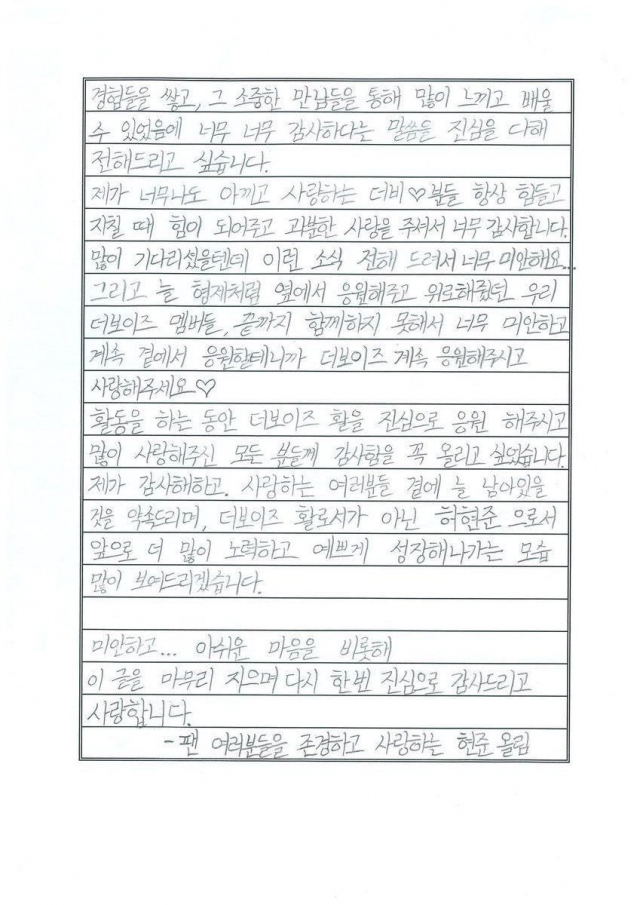 경험들을 쌓고, 그 소중한 만남들을 통해 많이 느끼고 배울
수 있었음에 너무 너무 감사하다는 말씀을 진심을 다해
전해드리고 싶습니다.
제가 너무나도 아끼고 사랑하는 더비♡분들 항상 힘들고
지칠 때 힘이 되어주고 과분한 사랑을 주셔서 너무 감사합니다.
많이 기다리셨을텐데 이런 소식 전해 드려서 너무 미안해요...
그리고 늘 형제처럼 옆에서 응원해주고 위로해줬던 우리
더보이즈 멤버들, 끝까지 함께하지 못해서 너무 미안하고
계속 곁에서 응원할테니까 더보이즈 계속 응원해주시고
사랑해주세요♡
활동을 하는 동안 더보이즈 활을 진심으로 응원 해주시고
많이 사랑해주신 모든 분들께 감사함을 꼭 올리고 싶었습니다.
제가 감사해하고. 사랑하는 여러분들 곁에 늘 남아있을
것을 약속드리며, 더보이즈 활로서가 아닌 허현준 으로서
앞으로 더 많이 노력하고 예쁘게 성장해나가는 모습
많이 보여드리겠습니다.
미안하고... 아쉬운 마음을 비롯해
이 글을 마무리 지으며 다시 한번 진심으로 감사드리고
사랑합니다.
- 팬 여러분들을 존경하고 사랑하는 현준 올림